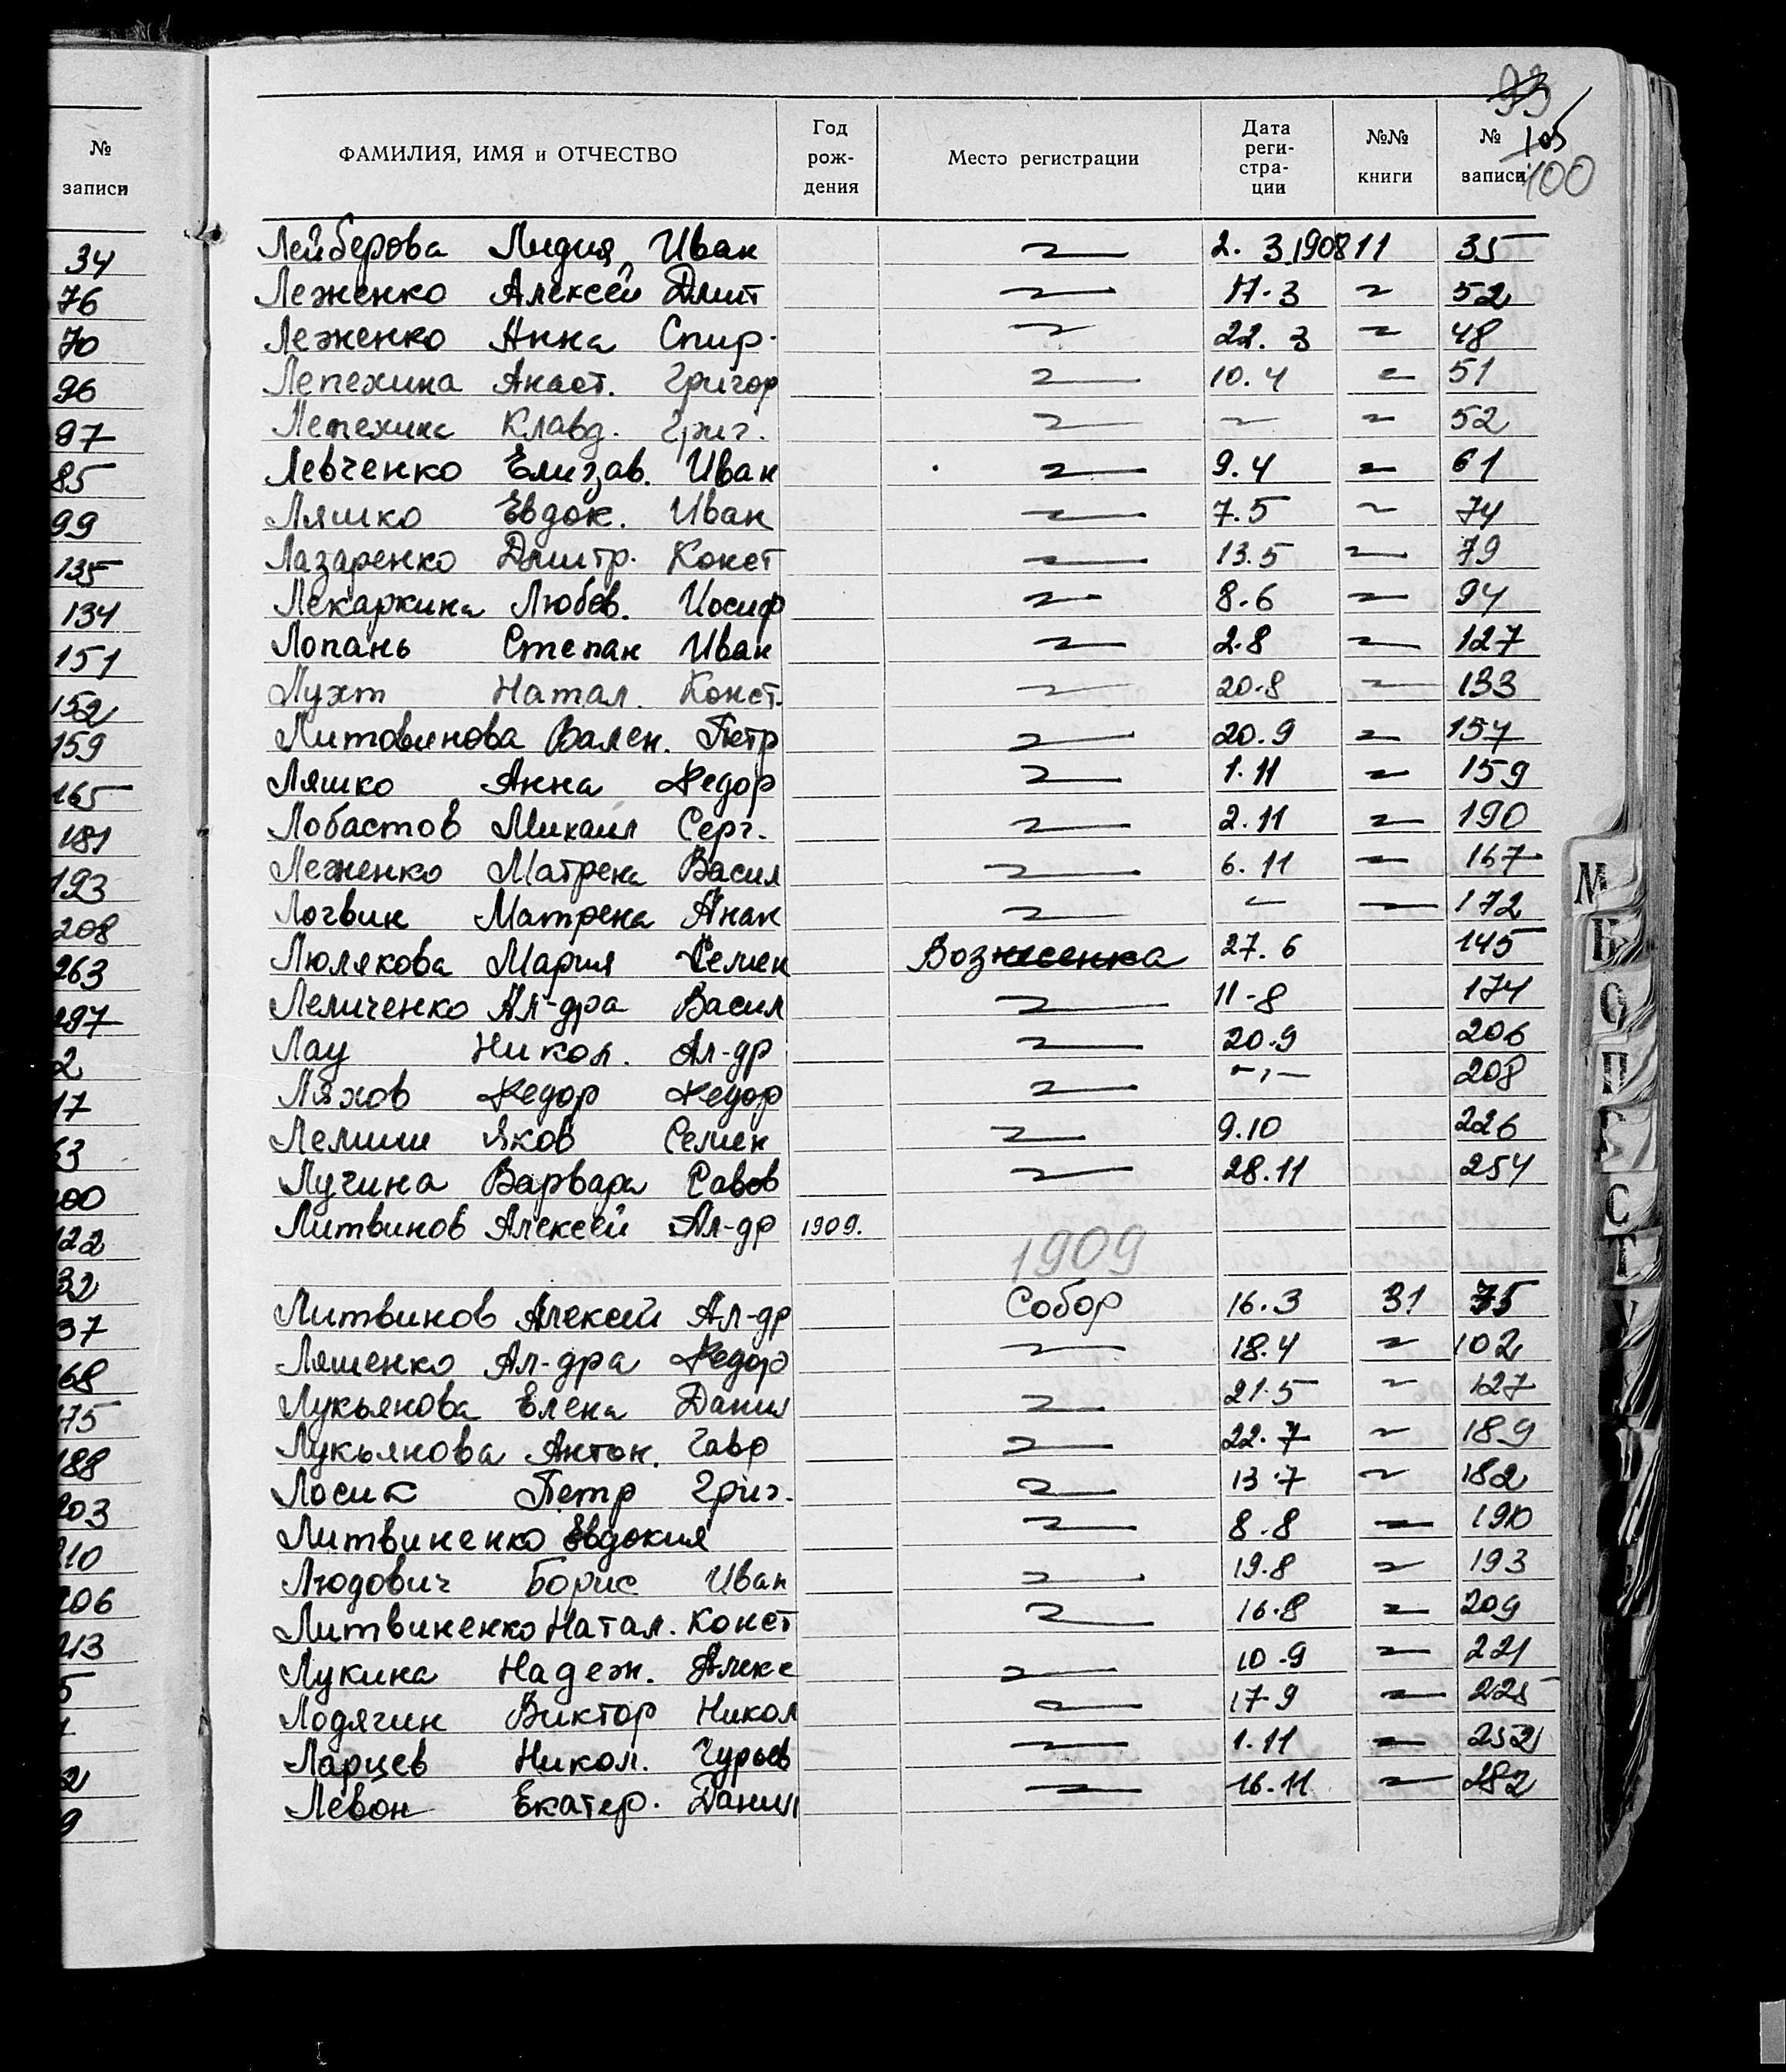 93
105
100
№ записи
ФАМИЛИЯ, ИМЯ и ОТЧЕСТВО Год рож-дения Место регистрации Дата реги-стра-ции №№ книги № записи
34
76
70
96
97
85
99
135
134
151
152
159
165
181
193
208
263
297
2
17
63
100
122
32
37
68
75
188
203
210
206
213
5
2
9
Лейберова Лидия Иван 〃 2. 3.1908 11 35
Леженко Алексей Дмит 〃 17.3 〃 52
Леженко Анна Спир. 〃 22. 3 〃 48
Лепехина Анаст. Григор 〃 10.4 〃 51
Лепехина Клавд. Григ. 〃 〃 〃 52
Левченко Елизав. Иван 〃 9.4 〃 61
Ляшко Евдок. Иван 〃 7.5 〃 74
Лазаренко Дмитр. Конст 〃 13.5 〃 79
Лекаркина Любов. Иосиф 〃 8.6 〃 94
Лопань Степан Иван 〃 2.8 〃 127
Лухт Натал. Конст. 〃 20.8 〃 133
Литовинова Вален. Петр 〃 20.9 〃 157
Ляшко Анна Федор 〃 1.11 〃 159
Лобастов Михаил Серг. 〃 2.11 〃 190
Леженко Матрена Васил 〃 6.11 〃 167
Логвин Матрена Анан 〃 〃 〃 172
Люлякова Мария Семен Вознесенка 27.6 145
Леличенко Ал-дра Васил 〃 11-8 174
Лау Никол. Ал-др 〃 20.9 206
Ляхов Федор Федор 〃 -,- 208
Лемиш Яков Семен 〃 9.10 226
Лучина Варвара Савов 〃 28.11 254
Литвинов Алексей Ал-др 1909.
1909
Литвинов Алексей Ал-др Собор 16.3 31 75
Ляшенко Ал-дра Федор 〃 18.4 〃 102
Лукьянова Елена Данил 〃 21.5 〃 127
Лукьянова Антон. Гавр 〃 22.7 〃 189
Лосик Петр Григ. 〃 13.7 〃 182
Литвиненко Евдокия 〃 8.8 〃 190
Людович Борис Иван 〃 19.8 〃 193
Литвиненко Натал. Конст 〃 16.8 〃 209
Лукина Надеж. Алекс 〃 10.9 〃 221
Лодягин Виктор Никол 〃 17.9 〃 225
Ларцев Никол. Гурьев 〃 1.11 〃 252
Левон Екатер. Данил 〃 16.11 〃 282
М
Н
О
П
С
Т
У